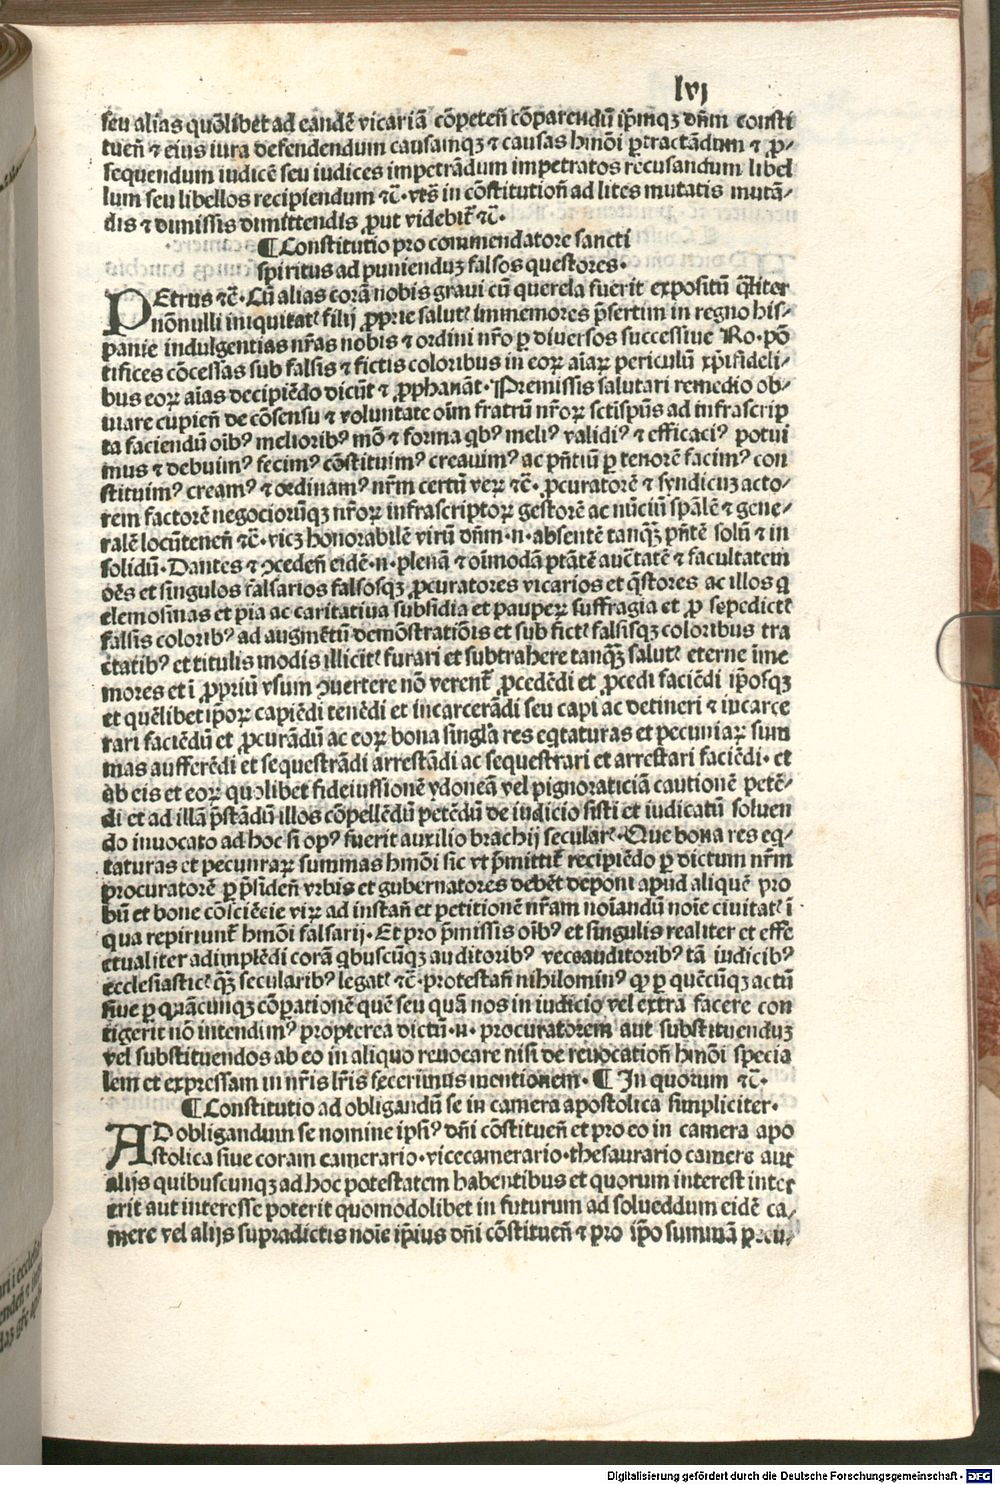 lvj
seu alias quōlibet ad eandē vicariā cōpeteñ cōparendū ip̄mqꝫ dñm consti
tueñ ⁊ eius iura defendendum causamqꝫ ⁊ causas hmōi ꝑtractādum ⁊ ꝓ⸗
sequendum iudicē seu iudices impetrādum impetratos recusandum libel
lum seu libellos recipiendum ⁊c̄. vts̄ in cōstitutioñ ad lites mutatis mutā⸗
dis ⁊ dimissis dimittendis ꝓut videbit᷑ ⁊c̄.
¶ Constitutio pro commendatore sancti
spiritus ad punienduꝫ falsos questores.
PEtrus ⁊c̄. Cū alias corā nobis graui cū querela fuerit expositū q̄liter
nōnulli iniquitatꝭ filij ꝓprie salutꝭ immemores p̄sertim in regno his⸗
panie indulgentias nr̄as nobis ⁊ ordini nr̄o ꝑ diuersos successiue Ro. pō
tifices cōcessas sub falsis ⁊ fictis coloribus in eoꝝ aīaꝝ periculū xp̄ifideli⸗
bus eoꝝ aīas decipiēdo dicūt ⁊ ꝓphanāt. Premissis salutari remedio ob⸗
uiare cupieñ de cōsensu ⁊ voluntate oīm fratrū nr̄oꝝ sctispūs ad infrascrip
ta faciendū oībꝰ melioribꝰ mō ⁊ forma qbꝰ meliꝰ validiꝰ ⁊ efficaciꝰ potui
mus ⁊ debuimꝰ fecimꝰ cōstituimꝰ creauimꝰ ac pn̄tiū ꝑ tenorē facimꝰ con
stituimꝰ creamꝰ ⁊ ordinamꝰ nr̄m certū veꝝ ⁊c̄. ꝓcuratorē ⁊ syndicuꝫ acto⸗
rem factorē negociorūqꝫ nr̄oꝝ infrascriptoꝝ gestorē ac nūciū spālē ⁊ gene⸗
ralē locūteneñ ⁊c̄. vicꝫ honorabilē virū dñm .n. absentē tanqꝫ̄ pn̄tē solū ⁊ in
solidū. Dantes ⁊ ꝯcedeñ eidē .n. plenā ⁊ oīmodā ptātē auc̄tatē ⁊ facultatem
oēs et singulos falsarios falsosqꝫ ꝓcuratores vicarios et q̄stores ac illos q
elemosinas et pia ac caritatiua subsidia et pauperꝝ suffragia et ꝓ sepedictꝭ
falsis coloribꝰ ad augmētū demōstratiōis et sub fictꝭ falsisqꝫ coloribus tra
ctatibꝰ et titulis modis illicitꝭ furari et subtrahere tanqꝫ̄ salutꝭ eterne īme
mores et ī ꝓpriū vsum ꝯuertere nō verent᷑ ꝓcedēdi et ꝓcedi faciēdi ip̄osqꝫ
et quēlibet ip̄oꝝ capiēdi tenēdi et incarcerādi seu capi ac detineri ⁊ incarce
rari faciēdū et ꝓcurādū ac eoꝝ bona singl̄a res eqtaturas et pecuniaꝝ sum
mas aufferēdi et sequestrādi arrestādi ac sequestrari et arrestari faciēdi. et
ab eis et eoꝝ quolibet fideiussionē ydoneā vel pignoraticiā cautionē petē⸗
di et ad illā p̄stādū illos cōpellēdū petēdū de iudicio sisti et iudicatū soluen
do inuocato ad hoc si opꝰ fuerit auxilio brachij secularꝭ. Que bona res eq⸗
taturas et pecuniaꝝ summas hmōi sic vt p̄mittit᷑ recipiēdo ꝑ dictum nr̄m
procuratorē ꝑ p̄sideñ vrbis et gubernatores debēt deponi apud aliquē pro
bū et bone cōsciēcie viꝝ ad instañ et petitionē nr̄am noīandū noīe ciuitatꝭ ī
qua repiriunt᷑ hmōi falsarij. Et pro p̄missis oībꝰ et singulis realiter et effe
ctualiter adimplēdi corā qbuscūqꝫ auditoribꝰ vecsauditoribꝰ tā iudicibꝰ
ecclesiasticꝭ qꝫ̄ secularibꝰ legatꝭ ⁊c̄. protestañ nihilominꝰ qꝫ ꝑ quēcūqꝫ actū
siue ꝑ quācunqꝫ cōpationē quē seu quā nos in iudicio vel extra facere con
tigerit nō intendimꝰ propterea dictū .n. procuratorem aut substituenduꝫ
vel substituendos ab eo in aliquo reuocare nisi de reuocatioñ hmōi specia
lem et expressam in nr̄is lr̄is fecerimus mentionem. ¶ In quorum ⁊c̄.
¶ Constitutio ad obligandū se in camera apostolica simpliciter.
AD obligandum se nomine ipsiꝰ dñi cōstitueñ et pro eo in camera apo
stolica siue coram camerario. vicecamerario. thesaurario camere aut
alijs quibuscunqꝫ ad hoc potestatem habentibus et quorum interest inter
erit aut interesse poterit quomodolibet in futurum ad solueddum eidē ca⸗
mere vel alijs supradictis noīe ip̄ius dñi cōstitueñ ⁊ pro ip̄o summā pecu⸗
Digitalisierung gefördert durch die Deutsche Forschungsgemeinschaft - DFG